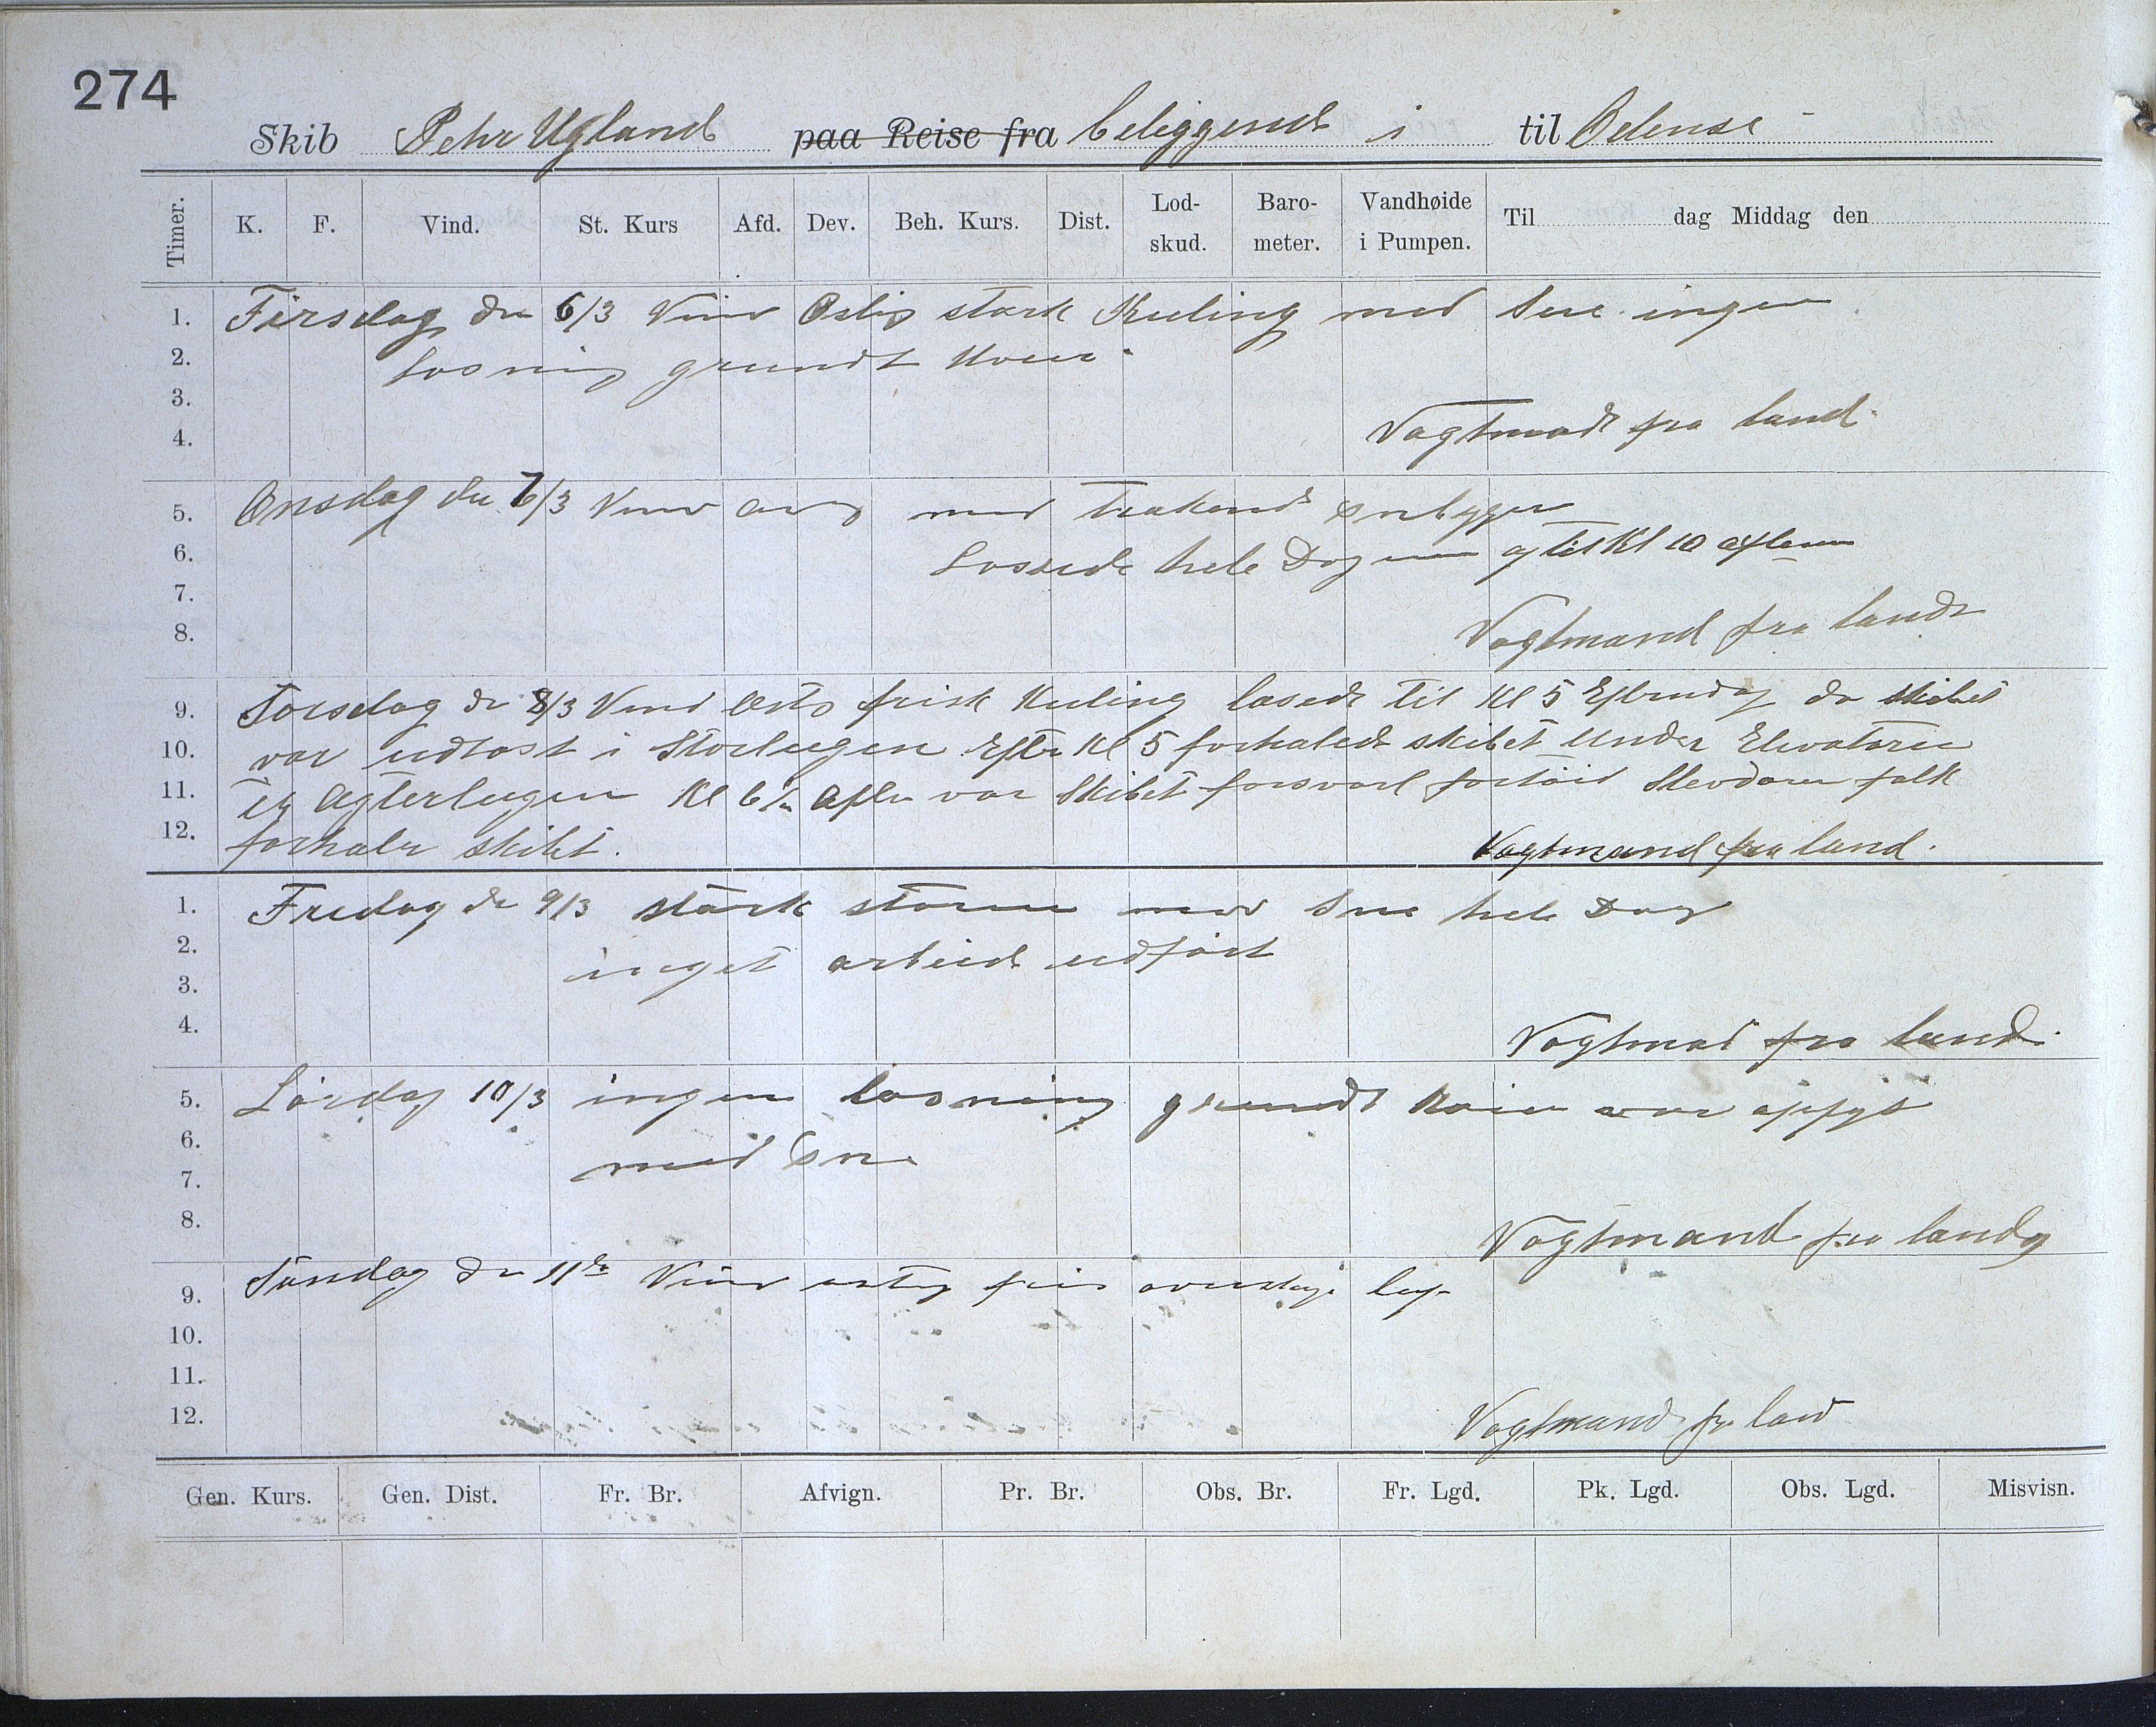 274
Skib Pehr Ugland paa Reise fra beliggende i til Odense
Timer. K. F. Vind. St. Kurs Afd. Dev. Beh. Kurs. Dist. Lod-skud. Baro-meter. Vandhøide i Pumpen. Til dag Middag den
1. Tirsdag den 6/3 Vind Ostlig stærk Kuling med Sne ingen
2. losning grundt
3.
4. Vagtmand fra land.
5. Onsdag den 7/3 Vind med snebygger
6. Lossede hele Dagen og til Kl 10 aften
7.
8. Vagtmand fra land
9. Torsdag d 8/3 Vind Ostlig frisk Kuling losede til Kl 5 Eftmidag da skibet
10. var udlost i Storlugen Efter Kl 5 forhaled skibet under Elevatoren
11. Agterlugen Kl 6 1/2 Aften var Skibet forsvarl fortöid Stevdorer folk
12. forhaler skibet. Vagtmand fra land.
1. Fredag d 9/3 stærk storm med Sne hele Dag
2. inget arbeide udfört
3.
4. Vagtmand fra land.
5. Lördag 10/3 ingen losning grundt Kaien var opfyt
6. med Sne
7.
8. Vagtmand fra land
9. Söndag d 11te Vind ostlig
10.
11.
12. Vagtmand fra land
Gen. Kurs. Gen. Dist. Fr. Br. Afvign. Pr. Br. Obs. Br. Fr. Lgd. Pk. Lgd. Obs. Lgd. Misvisn.